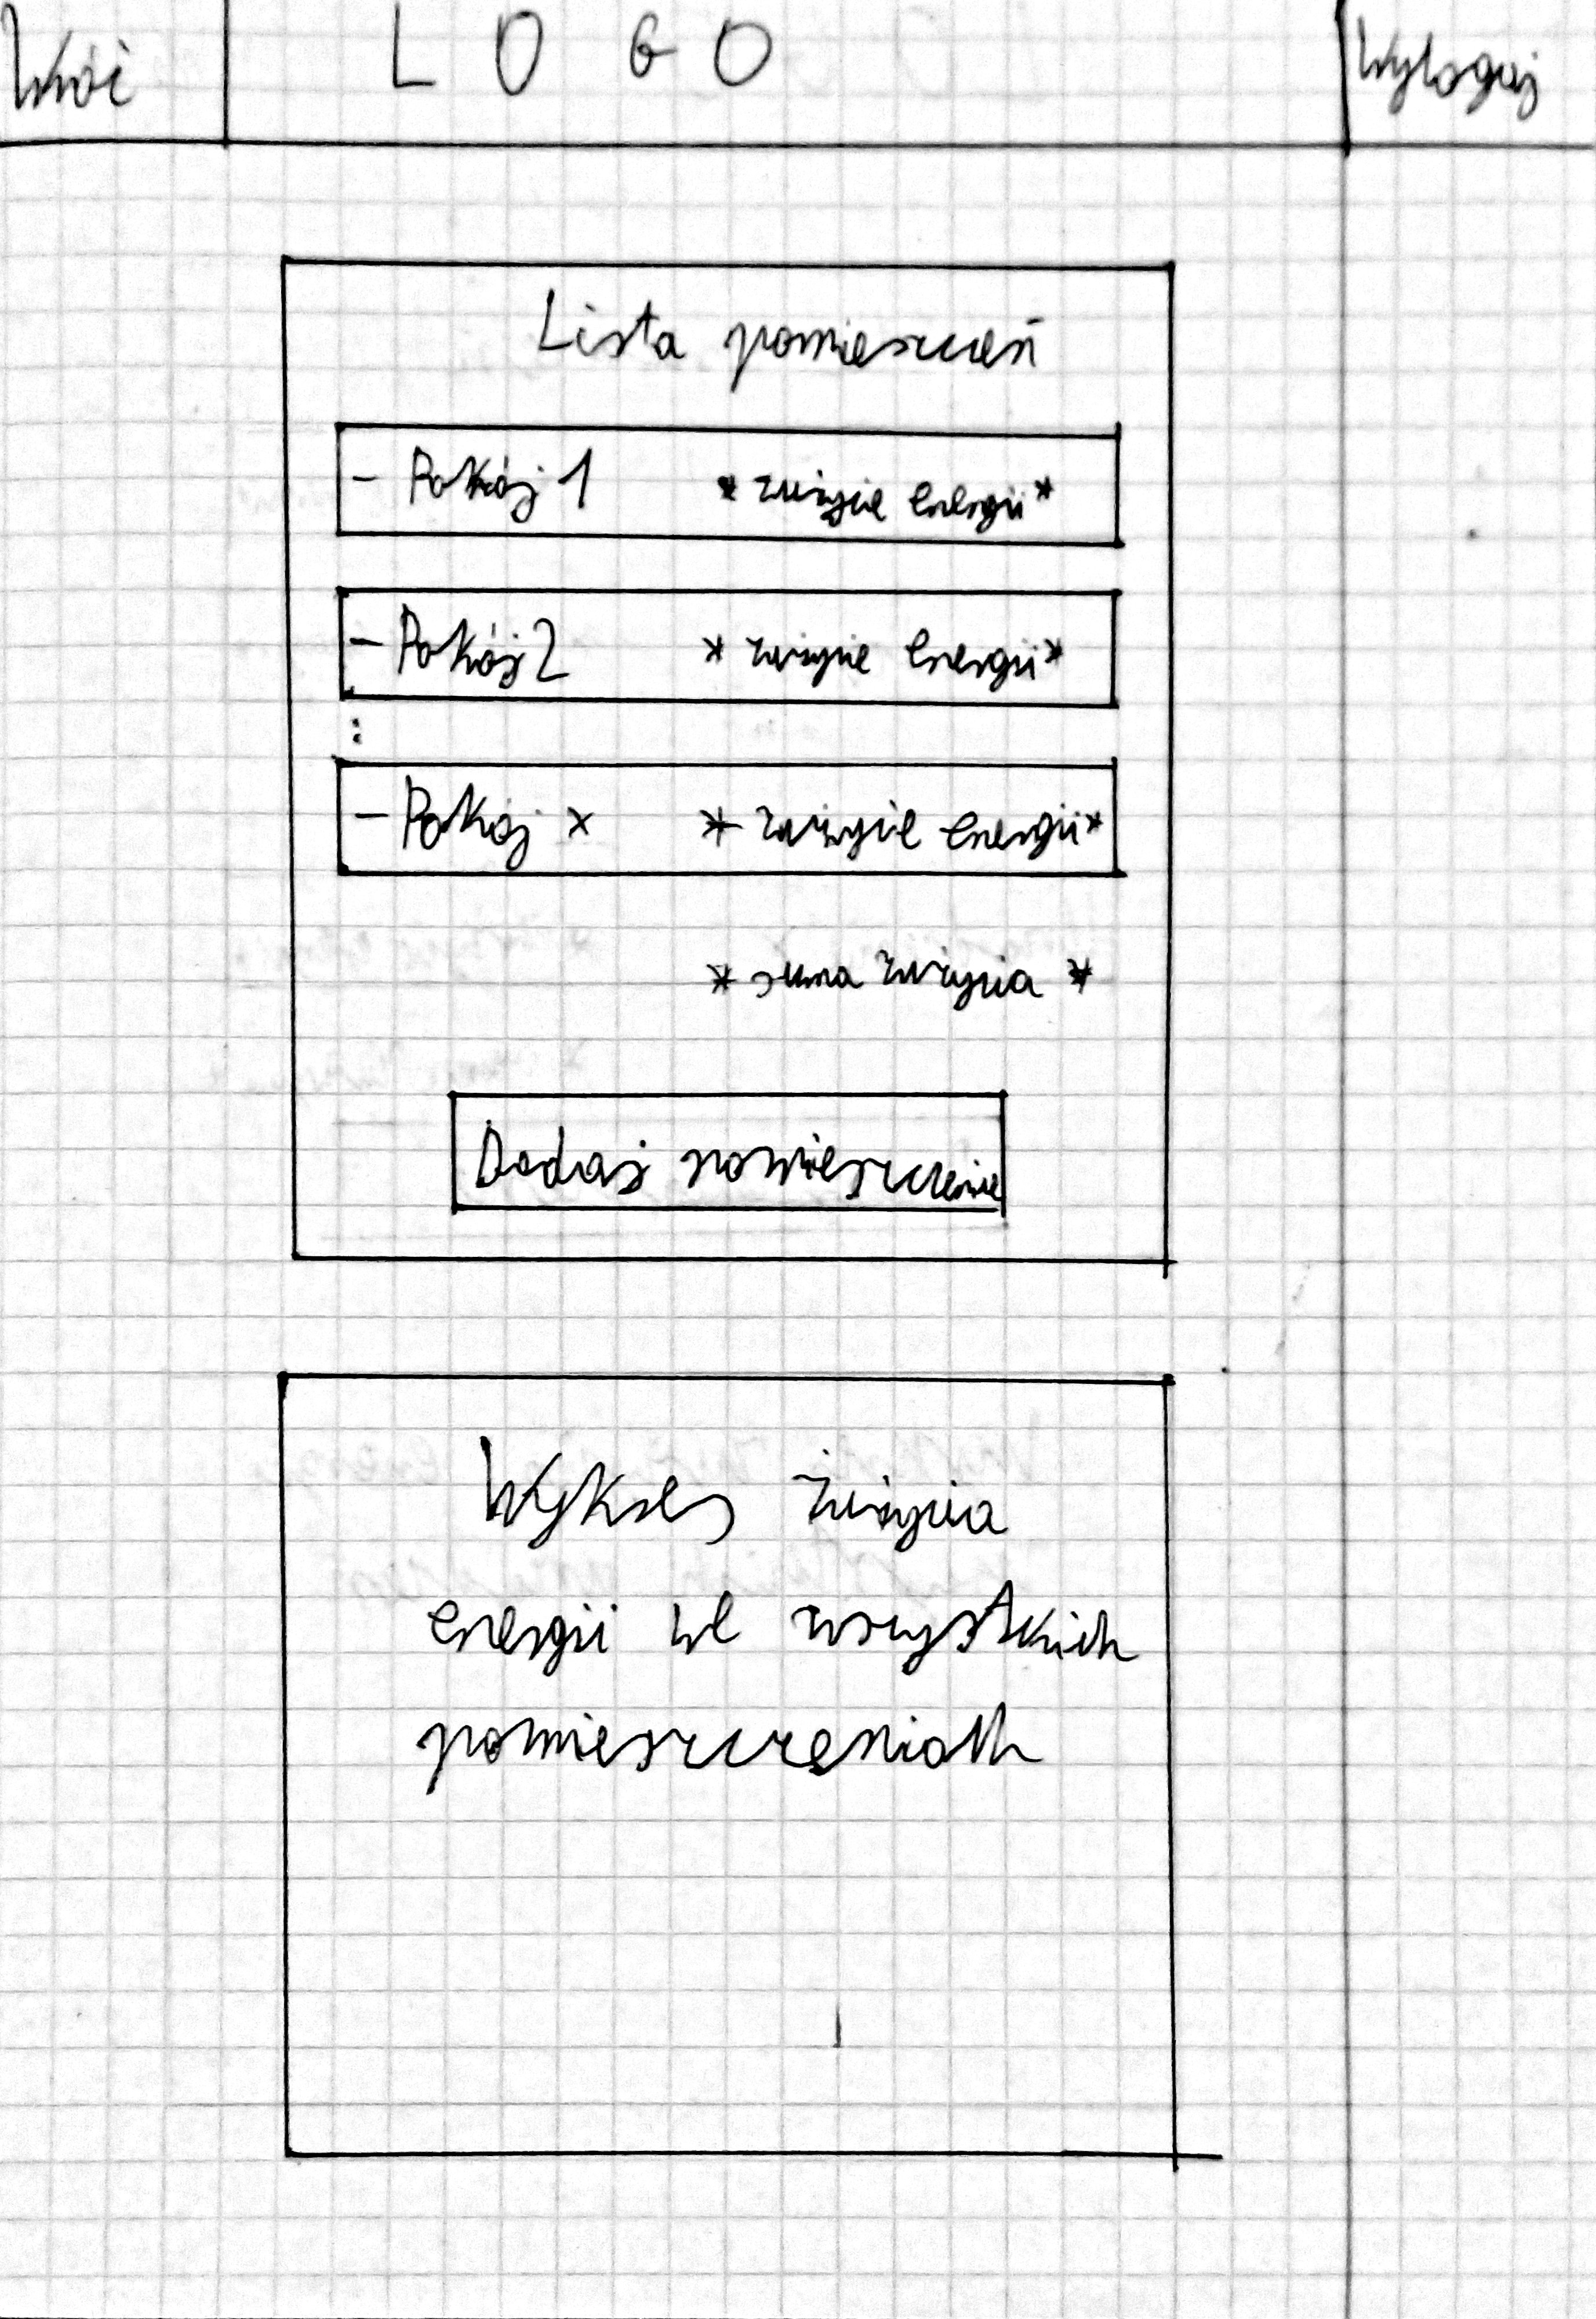 Wróć LOGO Wyloguj
Lista pomieszczeń
- Pokój 1 * zużycie energii *
- Pokój 2 * zużycie energii *
:
- Pokój x * zużycie energii *
* suma zużycia *
Dodaj pomieszczenie
Wykres zużycia
energii we wszystkich
pomieszczeniach